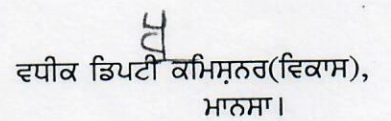 ਵਧੀਕ ਡਿਪਟੀ ਕਮਿਸ਼ਨਰ(ਵਿਕਾਸ),
ਮਾਨਸਾ।